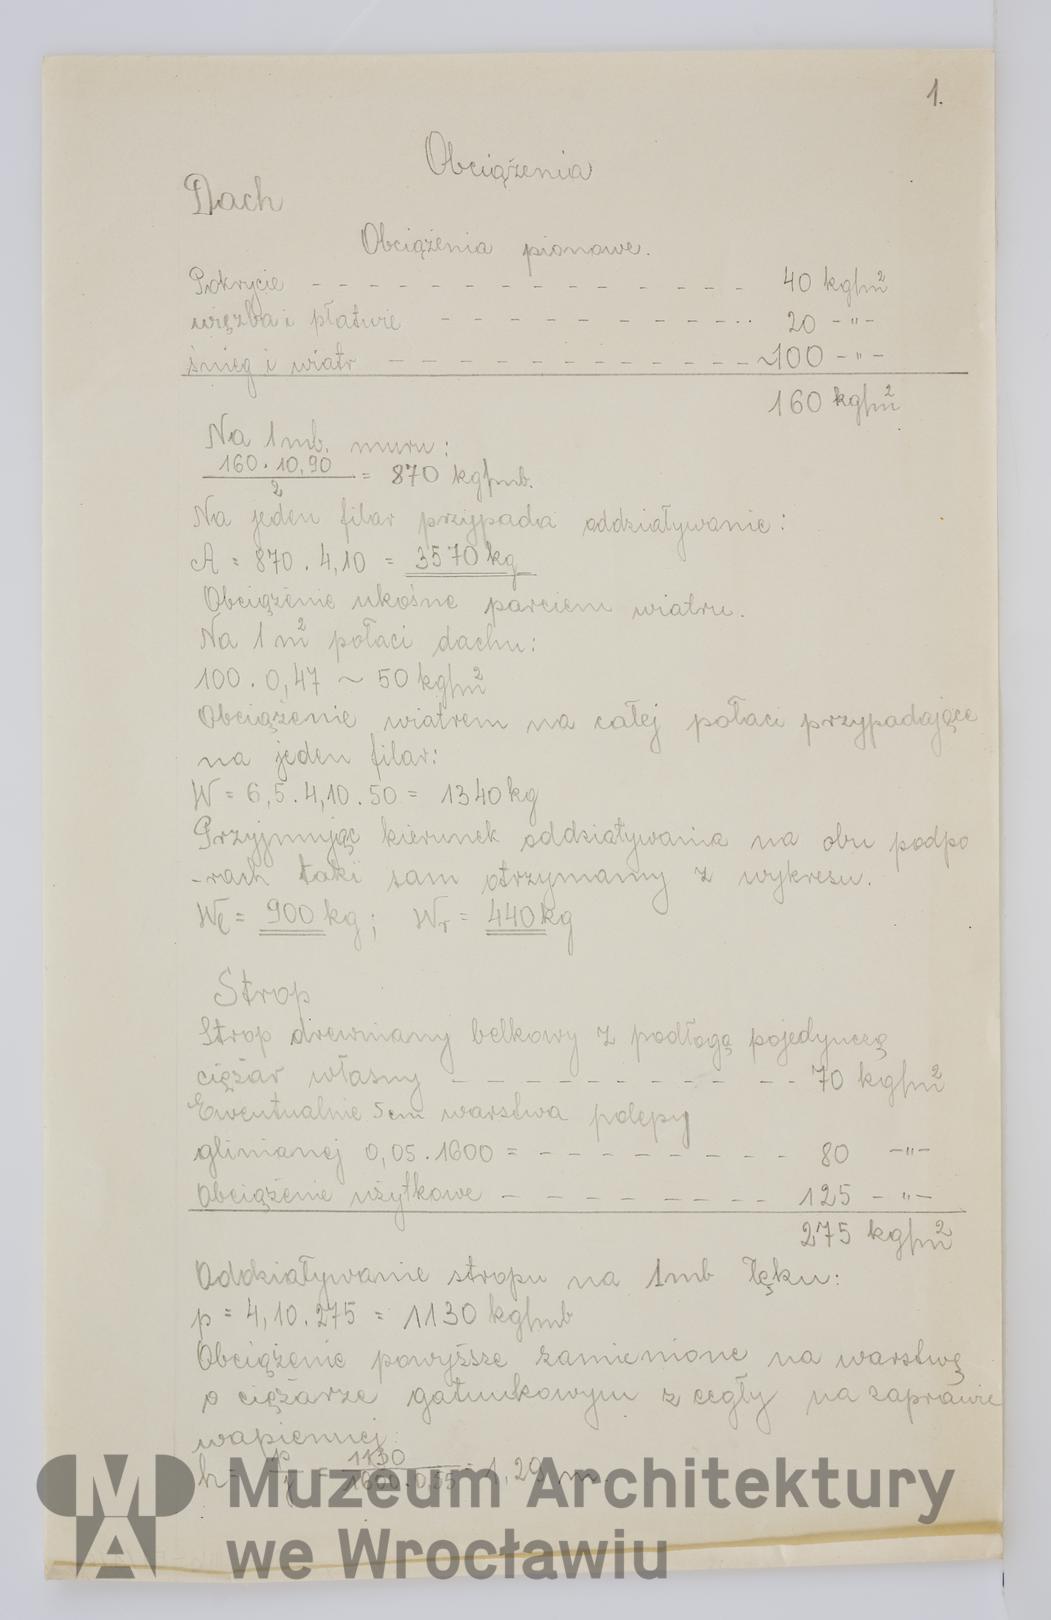 1.
Obciążenia
Dach
Obciążenia pionowe.
Pokrycie - - - - - - - - - - - - - 40 kg/m²
więzba i płatwie - - - - - - - - - - - 20 -"-
śnieg i wiatr - - - - - - - - - - - ~100 -"-
160 kg/m²
Na 1mb. muru:
160 . 10,90 / 2 = 870 kg/mb.
Na jeden filar przypada oddziaływanie:
A = 870 . 4,10 = 3570 kg
Obciążenie ukośne parciem wiatru.
Na 1 m² połaci dachu:
100 . 0,47 ~ 50 kg/m²
Obciążenie wiatrem na całej połaci przypadające
na jeden filar:
W = 6,5 . 4,10 . 50 = 1340 kg
Przyjmując kierunek oddziaływania na obu podpo
-rach taki sam otrzymamy z wykresu.
Wl = 900 kg ; Wr = 440 kg
Strop
Strop drewniany belkowy z podłogą pojedynczą
ciężar własny - - - - - - - - - - 70 kg/m²
Ewentualnie 5cm warstwa polepy
glinianej 0,05 . 1600 = - - - - - - - - - 80 -"-
Obciążenie użytkowe - - - - - - - - 125 -"-
275 kg/m²
Oddziaływanie stropu na 1mb łęku:
p = 4,10 . 275 = 1130 kg/mb
Obciążenie powyższe zamienione na warstwę
o ciężarze gatunkowym z cegły na zaprawie
wapiennej:
h = p / γ = 1130 / 1600 . 0,55 = 1,29 m.
Muzeum Architektury
we Wrocławiu
MA